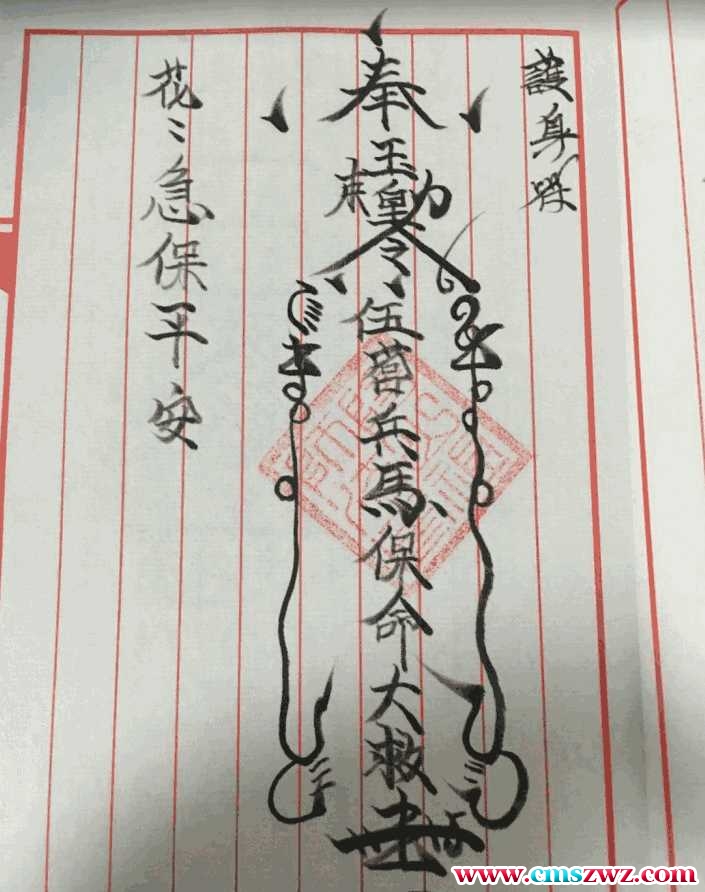 護身
奉
玉皇
勅令
伍營兵馬保命大救
花〻急保平安
www.cmszwz.com